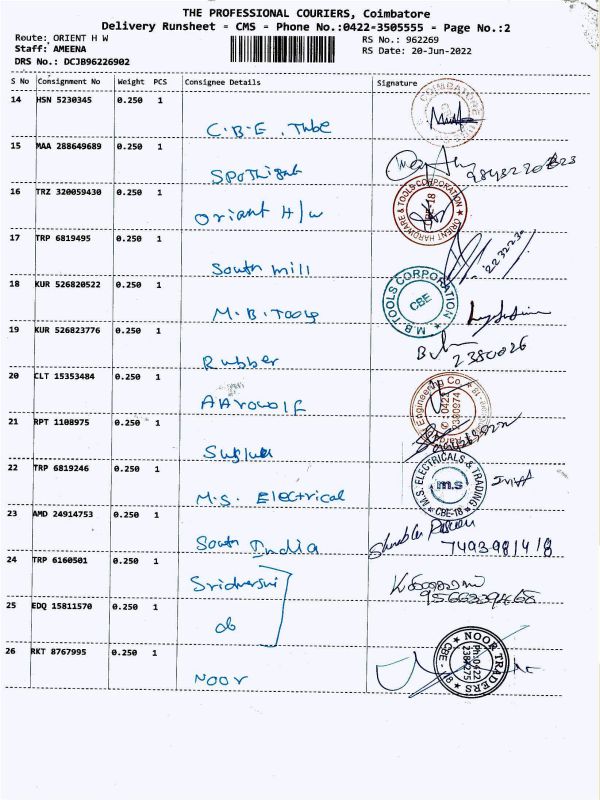 THE PROFESSIONAL COURIERS, Coimbatore
Delivery Runsheet - CMS - Phone No.:0422-3505555 - Page No.:2
Route: ORIENT H W
RS No.: 962269
Staff: AMEENA
RS Date: 20-Jun-2022
DRS No.: DCJB96226902
S No Consignment No Weight PCS Consignee Details Signature
14 HSN 5230345 0.250 1
C.B.E. Tube
15 MAA 288649689 0.250 1
16 TRZ 320059430 0.250 1
Oriant H/w
ORIENT HARDWARE & TOOLS CORPORATION
CBE-18
17 TRP 6819495 0.250 1
South mill
18 KUR 526820522 0.250 1
M.B. Tools
M.B TOOLS CORPORATION
CBE
19 KUR 526823776 0.250 1
Rubber
2380026
20 CLT 15353484 0.250 1
AArowolf
Engineering Co
21 RPT 1108975 0.250 1
22 TRP 6819246 0.250 1
M.S. Electrical
M.S. ELECTRICALS & TRADING
m.s
CBE-18
23 AMD 24914753 0.250 1
South India
7493981418
24 TRP 6160501 0.250 1
25 EDQ 15811570 0.250 1
do
26 RKT 8767995 0.250 1
Noor
NOOR TRADERS
Ph:0422
2384275
CBE - 18